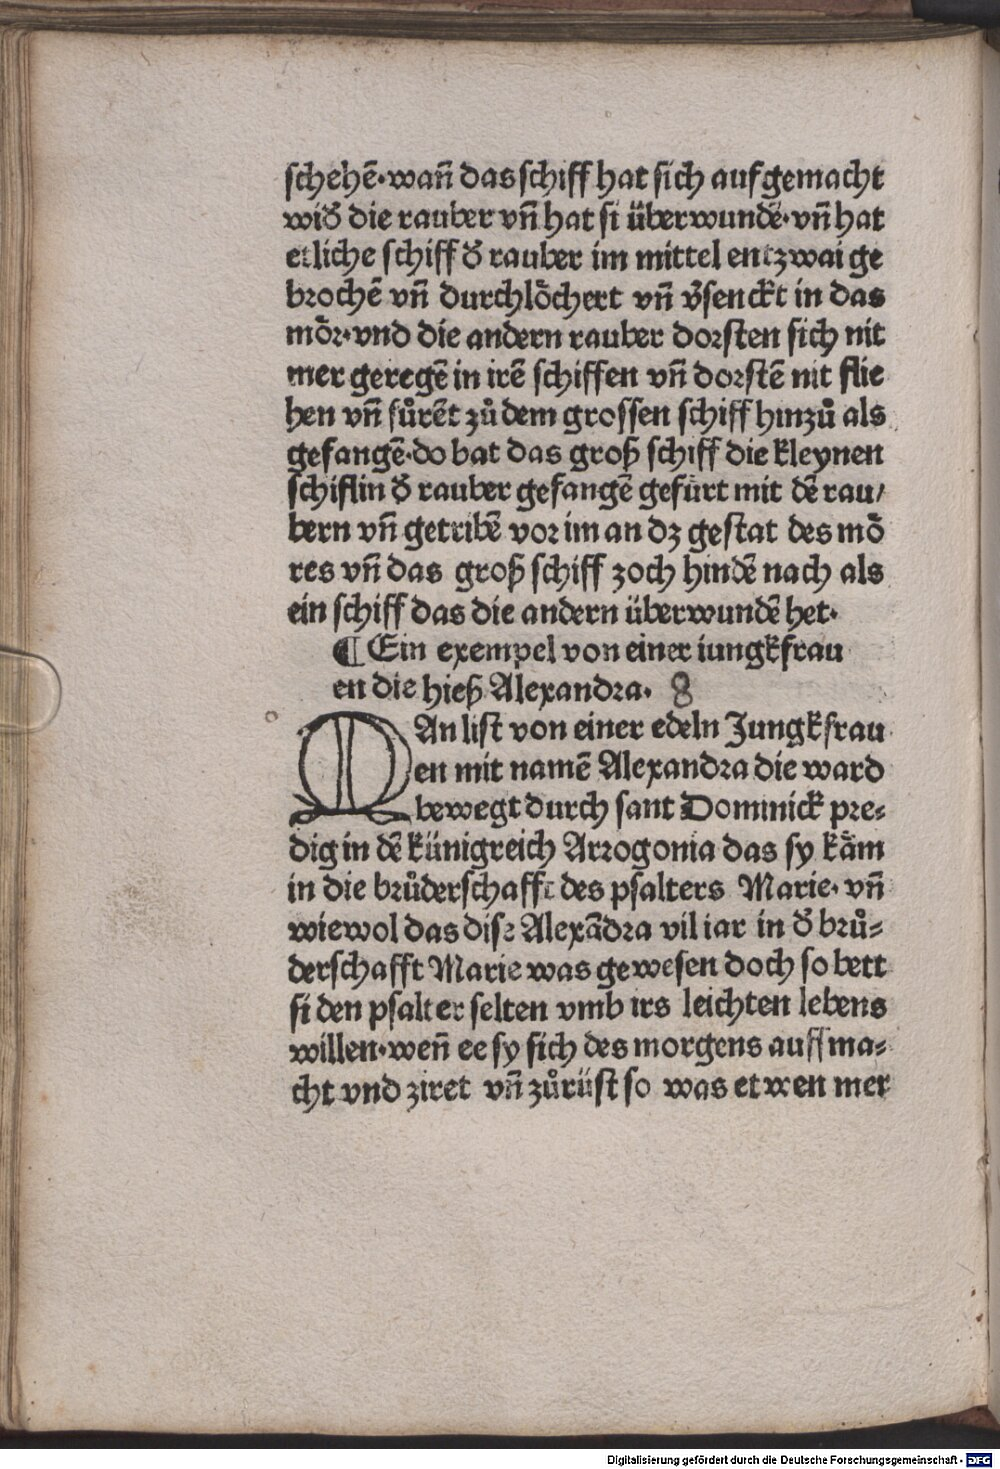 schehẽ·wañ das schiff hat sich auf gemacht
wid̾ die rauber vñ hat si überwundẽ·vñ hat
etliche schiff d̾ rauber im mittel entzwai ge
brochẽ vñ durchlöchert vñ v̾senckt in das
mör·vnd die andern rauber dorsten sich nit
mer geregẽ in irẽ schiffen vñ dorstẽ nit flie
hen vñ fůrẽt zů dem grossen schiff hinzů als
gefangẽ·do hat das groß schiff die kleynen
schiflin d̾ rauber gefangẽ gefürt mit dẽ rau/
bern vñ getribẽ vor im an dz gestat des mö
res vñ das groß schiff zoch hindẽ nach als
ein schiff das die andern überwundẽ het·
¶ Ein exempel von einer iungkfrau
en die hieß Alexandra· 8
MAn list von einer edeln Jungkfrau
en mit namẽ Alexandra die ward
bewegt durch sant Dominick pre⸗
dig in dẽ künigreich Arrogonia das sy kåm
in die brůderschafft des psalters Marie· vñ
wiewol das dise Alexãdra vil iar in d̾ brů⸗
derschafft Marie was gewesen doch so bett
si den psalter selten vmb irs leichten lebens
willen·weñ ee sy sich des morgens auff ma⸗
cht vnd ziret vñ zůrüst so was etwen mer
Digitalisierung gefördert durch die Deutsche Forschungsgemeinschaft - DFG